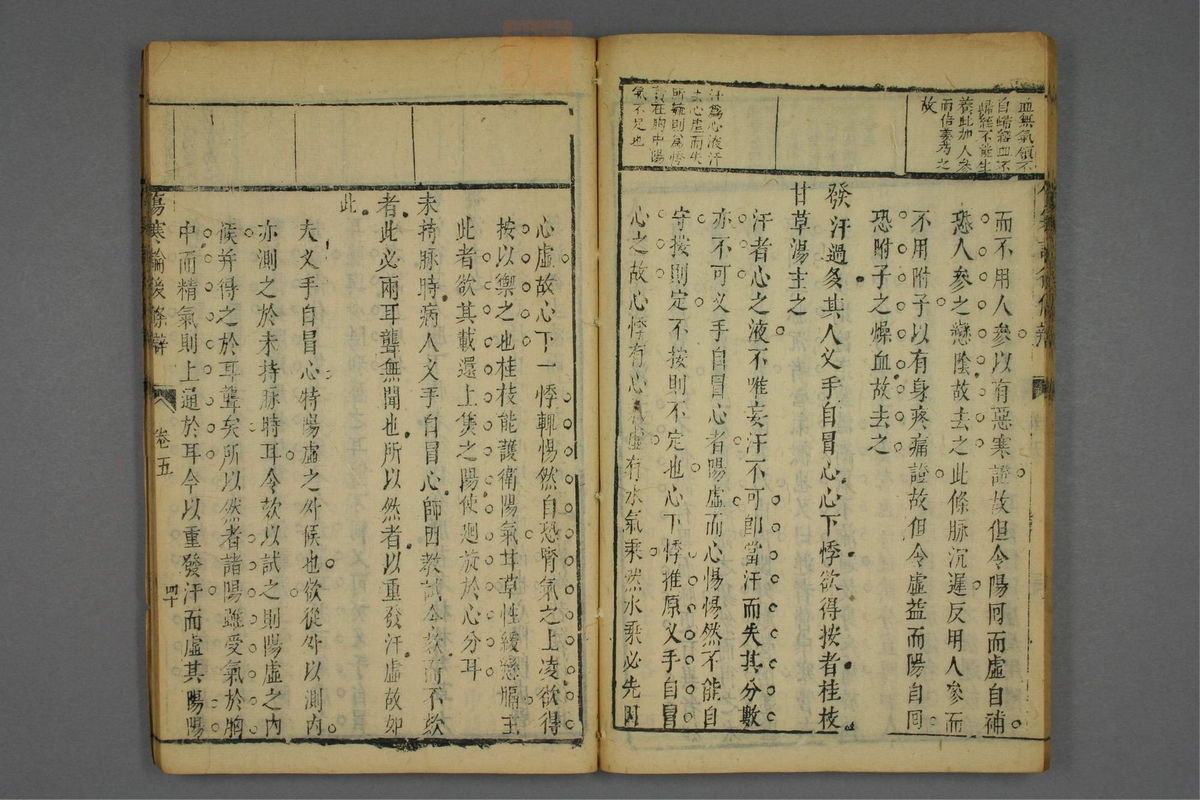 血無氣領不
自歸經血不
歸經不能生
養此加人參
而倍姜芍之
故
汗爲心液汗
去心虛而失
所輔則爲悸
責在胸中陽
氣不足也
而不用人參以有惡寒證故但令陽回而虛自補
恐人參之戀陰故去之此條脉沉遲反用人參而
不用附子以有身疼痛證故但令虛益而陽自回
恐附子之燥血故去之
發汗過多其人叉手自冒心心下悸欲得按者桂枝
甘草湯主之
汗者心之液不唯妄汗不可卽當汗而失其分數
亦不可叉手自冒心者陽虛而心惕惕然不能自
守按則定不按則不定也心下悸推原叉手自冒
心之故心悸有心虛有水氣乘然水乘必先因
心虛故心下一悸輒惕然自恐腎氣之上凌欲得
按以禦之也桂枝能護衛陽氣甘草性緩戀膈主
此者欲其載還上焦之陽使迴旋於心分耳
未持脉時病人叉手自冒心師因教試令欬而不欬
者此必兩耳聾無聞也所以然者以重發汗虛故如
此
夫叉手自冒心特陽虛之外候也欲從外以測內
亦測之於未持脉時耳令欬以試之則陽虛之內
候并得之於耳聾矣所以然者諸陽雖受氣於胸
中而精氣則上通於耳今以重發汗而虛其陽陽
傷寒論後條辯
卷五
四十